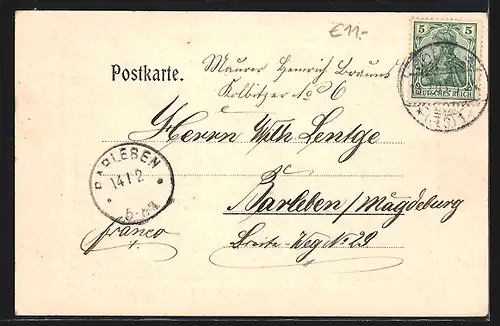 £11.-
5 5
DEUTSCHES REICH
Postkarte.
Maurer Heinrich Brauns
Kolbitzer No 6
Herrn Wilh Lentge
BARLEBEN
14.1 2
5-6
Barleben/Magdeburg
franco
Breite-Weg No 29